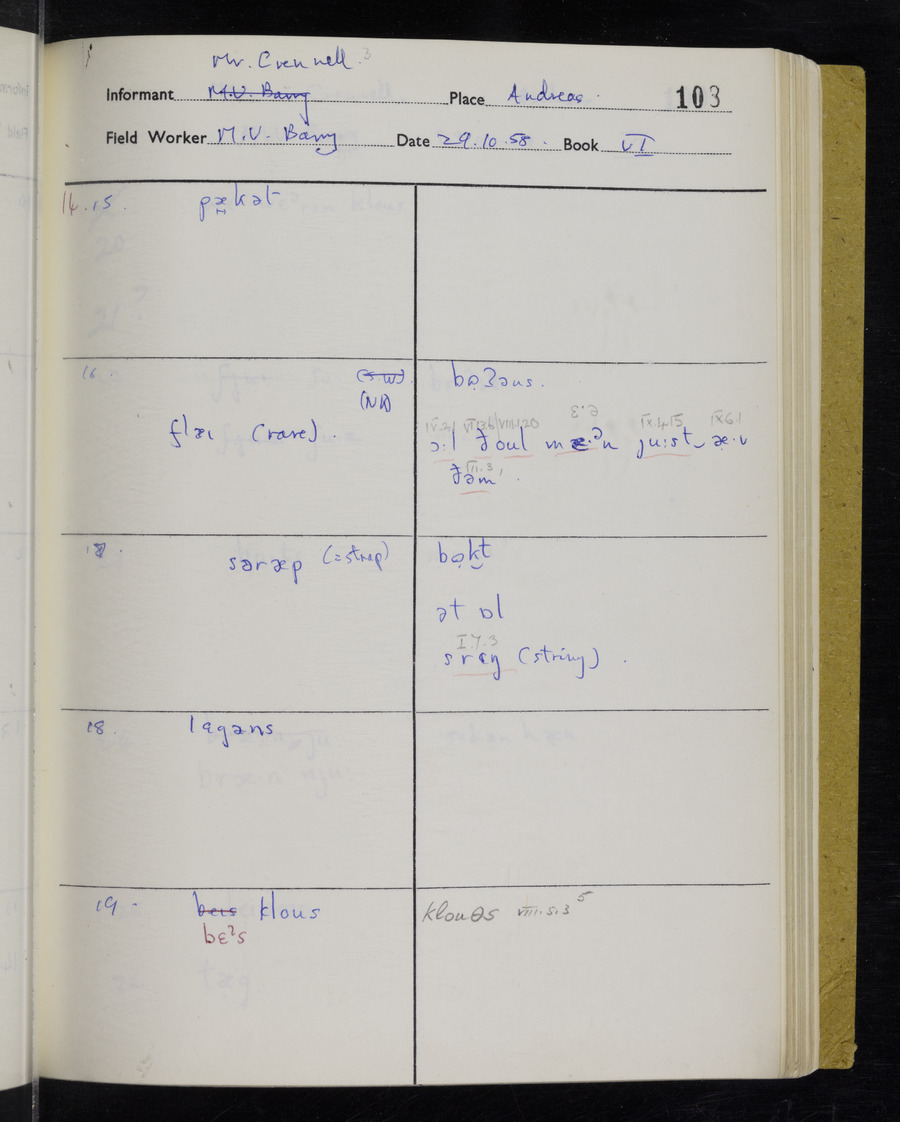 Mr. Crennell. 3
Informant M.V. Barry Place Andreas. 103
Field Worker M.V. Barry Date 29.10.58. Book VI
14.15. pækət
16. (S.W.) bọʒəus.
(NR)
flæɪ (rare).
IV.2 VIII.1.20 ɛ·ə IX.4.15 IX6.1
ɔ:l ðoul mæ·ᵊn ju:st æ·v
VII.3
ðəm
17. səræp (=strap) bọkt
ət ɒl
I.7.3
srɩŋ (string).
18. lɛgəns
19. beɪs klous klouθs VIII.5.3 5
bɛˀs